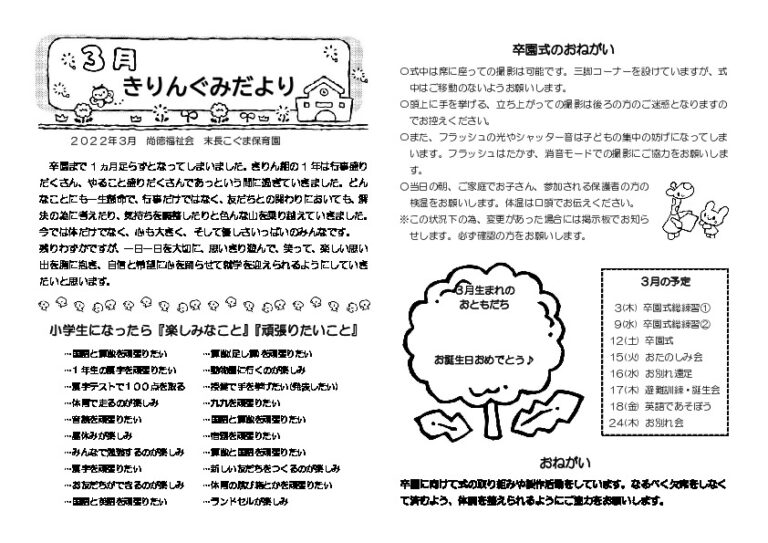 3月
きりんぐみだより
2022年3月 尚徳福祉会 末長こぐま保育園
卒園まで1ヵ月足らずとなってしまいました。きりん組の1年は行事盛り
だくさん、やること盛りだくさんであっという間に過ぎていきました。どん
なことにも一生懸命で、行事だけではなく、友だちとの関わりにおいても、解
決の為に考えたり、気持ちを調整したりと色んな山を乗り越えていきました。
今では体だけでなく、心も大きく、そして優しさいっぱいのみんなです。
残りわずかですが、一日一日を大切に、思いきり遊んで、笑って、楽しい思い
出を胸に抱き、自信と希望に心を踊らせて就学を迎えられるようにしていき
たいと思います。
小学生になったら『楽しみなこと』『頑張りたいこと』
…国語と算数を頑張りたい
…1年生の漢字を頑張りたい
…漢字テストで100点を取る
…体育で走るのが楽しみ
…音読を頑張りたい
…昼休みが楽しみ
…みんなで勉強するのが楽しみ
…漢字を頑張りたい
…お友だちができるのが楽しみ
…国語と英語を頑張りたい
…算数(足し算)を頑張りたい
…動物園に行くのが楽しみ
…授業で手を挙げたい(発表したい)
…九九を頑張りたい
…国語と算数を頑張りたい
…宿題を頑張りたい
…算数と国語を頑張りたい
…新しい友だちをつくるのが楽しみ
…体育の跳び箱とかを頑張りたい
…ランドセルが楽しみ
卒園式のおねがい
○式中は席に座っての撮影は可能です。三脚コーナーを設けていますが、式
中はご移動のないようお願いします。
○頭上に手を挙げる、立ち上がっての撮影は後ろの方のご迷惑となりますの
でお控えください。
○また、フラッシュの光やシャッター音は子どもの集中の妨げになってしま
います。フラッシュはたかず、消音モードでの撮影にご協力をお願いしま
す。
○当日の朝、ご家庭でお子さん、参加される保護者の方の
検温をお願いします。体温は口頭でお伝えください。
※この状況下の為、変更があった場合には掲示板でお知ら
せします。必ず確認の方をお願いします。
3月生まれの
おともだち
お誕生日おめでとう♪
3月の予定
3(木) 卒園式総練習①
9(水) 卒園式総練習②
12(土) 卒園式
15(火) おたのしみ会
16(水) お別れ遠足
17(木) 避難訓練・誕生会
18(金) 英語であそぼう
24(木) お別れ会
おねがい
卒園に向けて式の取り組みや製作活動をしています。なるべく欠席をしなく
て済むよう、体調を整えられるようにご協力をお願いします。